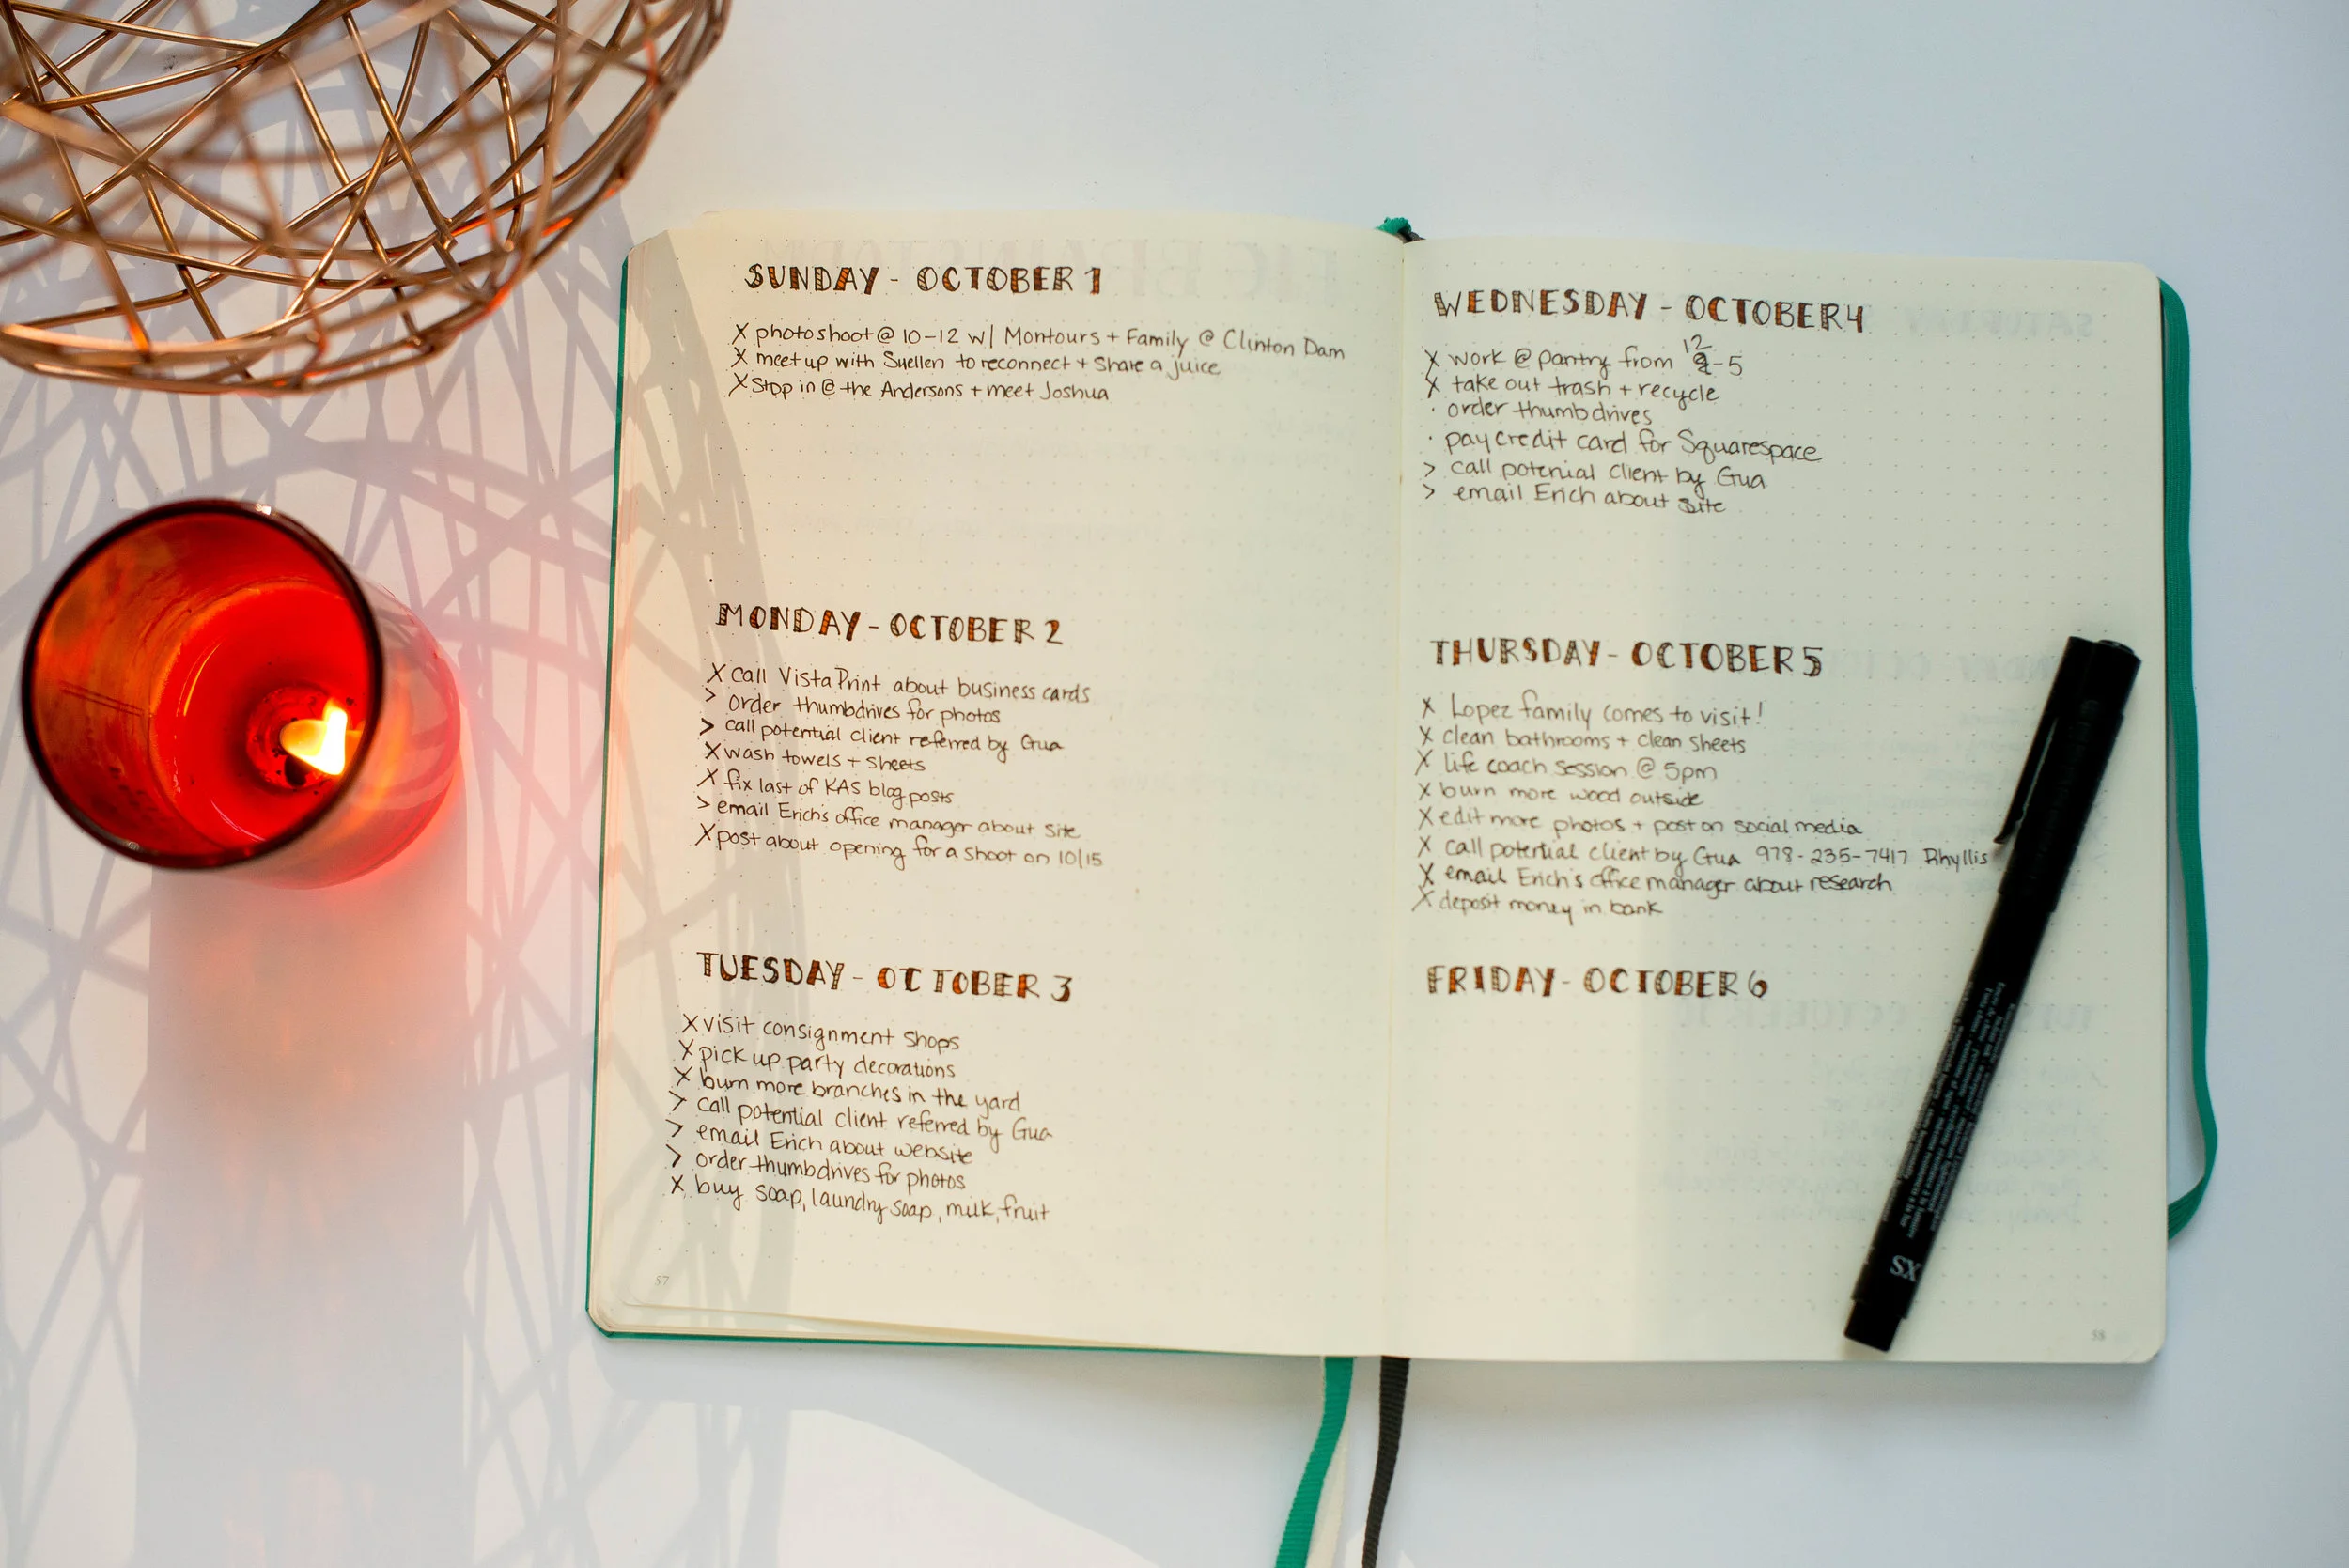 SUNDAY - OCTOBER 1
X photoshoot @ 10-12 w/ Montours + Family @ Clinton Dam
X meet up with Suellen to reconnect + share a juice
X Stop in @ the Andersons + meet Joshua
MONDAY - OCTOBER 2
X call VistaPrint about business cards
> order thumbdrives for photos
> call potential client referred by Gua
X wash towels + sheets
X fix last of KAS blog posts
> email Erich's office manager about site
X post about opening for a shoot on 10/15
TUESDAY - OCTOBER 3
X visit consignment shops
X pick up party decorations
X burn more branches in the yard
> call potential client referred by Gua
> email Erich about website
> order thumbdrives for photos
X buy soap, laundry soap, milk, fruit
57
WEDNESDAY - OCTOBER 4
X work @ pantry from 12-5
X take out trash + recycle
· order thumbdrives
· pay credit card for Squarespace
> call potenial client by Gua
> email Erich about site
THURSDAY - OCTOBER 5
X Lopez family comes to visit!
X clean bathrooms + clean sheets
X life coach session @ 5pm
X burn more wood outside
X edit more photos + post on social media
X call potential client by Gua 978-235-7417 Rhyllis
X email Erich's office manager about research
X deposit money in bank
FRIDAY - OCTOBER 6
XS
58